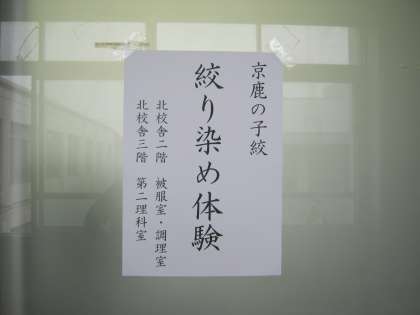 京鹿の子絞
絞り染め体験
北校舎二階　被服室・調理室
北校舎三階　第二理科室